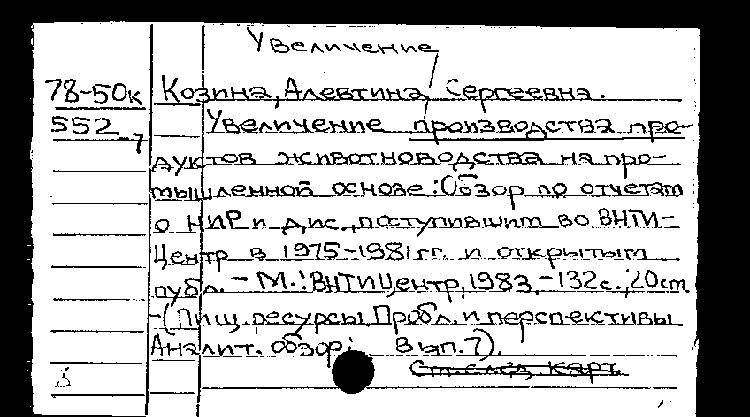 Увеличение
78-50к Козина, Алевтина Сергеевна.
552-7 Увеличение производства про-
дуктов животноводства на про-
мышленной основе: Обзор по отчетам
о НИР и дис., поступившим во ВНТИ-
Центр в 1975-1981 гг. и открытым
публ. - М.: ВНТИЦентр, 1983. - 132 с.; 20 см
- (Пищ. ресурсы. Пробл. и перспективы
Аналит. обзор; Вып. 7).
карт